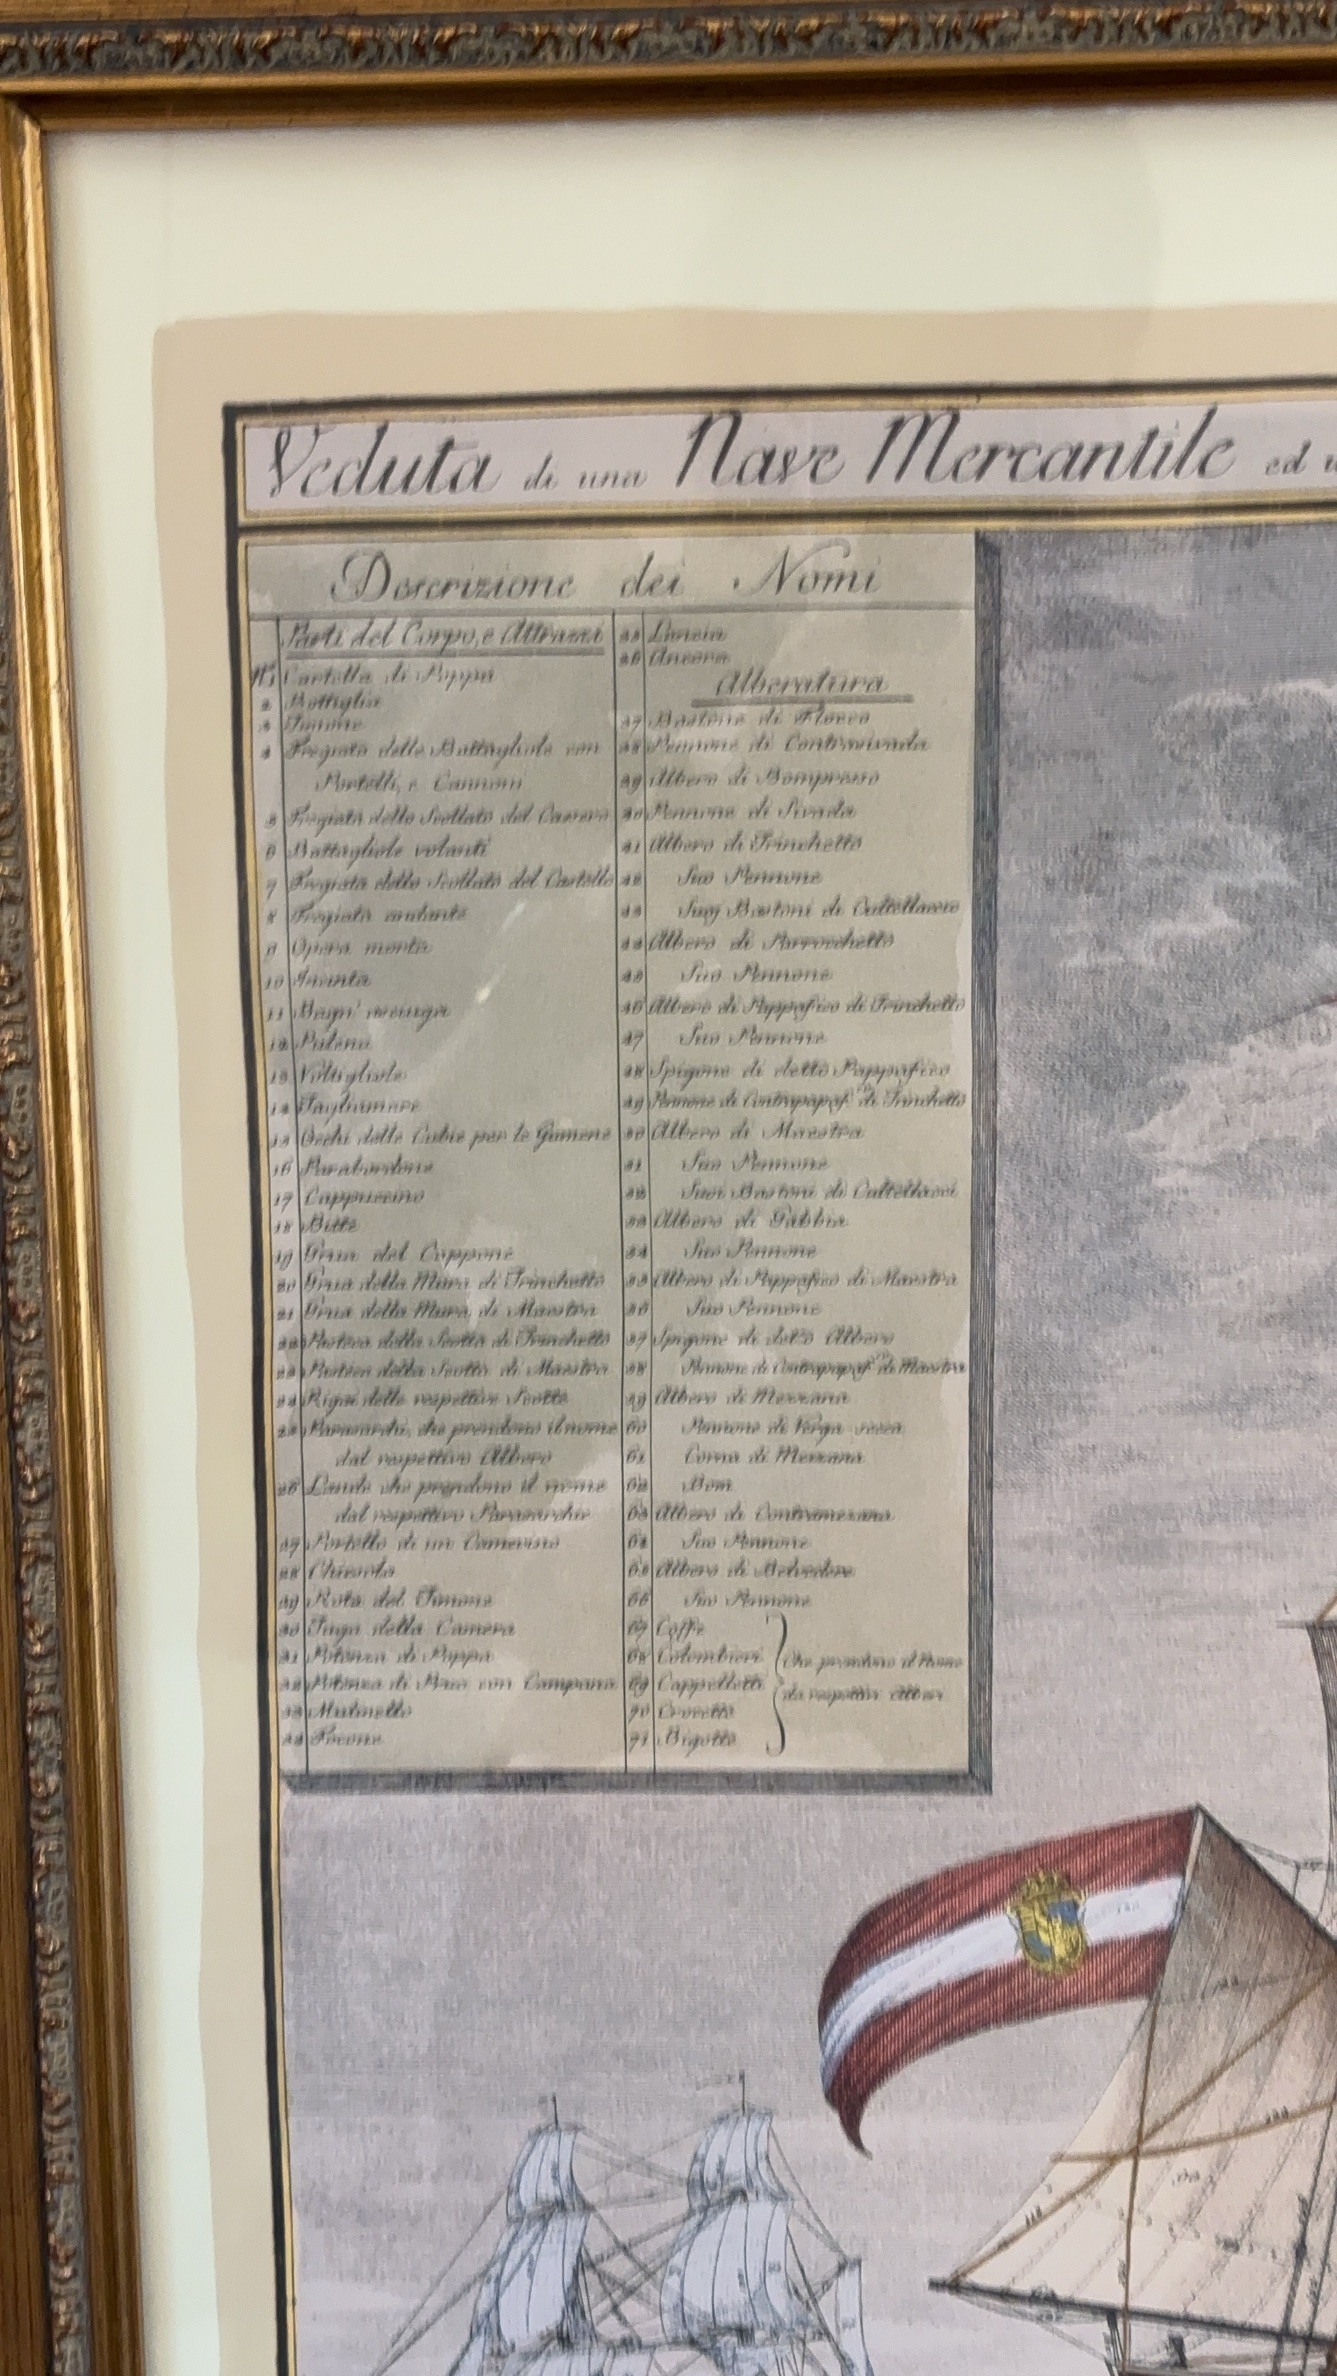 Veduta di una Nave Mercantile ed
Descrizione dei Nomi
Parti del Corpo, e Attrazzi
N.1 Cartella di Poppa
2 Bottiglia
3 Timone
4 Fregiata delle Battagliole con
Portelli, e Cannoni
5 Fregiata dello Scollato del Cassero
6 Battagliole volanti
7 Fregiata dello Scollato del Castello
8 Fregiata andante
9 Opera morta
10 Incinta
11
12 Polena
13 Voltigliole
14 Tagliamare
15 Occhi delle Cubie per le Gumene
16 Parabordone
17 Cappuccino
18 Bitte
19 Grua del Cappone
20 Grua della Mura di Trinchetto
21 Grua della Mura di Maestra
22 Pasteca della Scotta di Trinchetto
23 Pasteca della Scotta di Maestra
24 delle respettive Scotte
25 Parasarchi, che prendono il nome
dal respettivo Albero
26 Lande che prendono il nome
dal respettivo Parasarchio
27 Portello di un Camerino
28 Chiesola
29 Rota del Timone
30 Tuga della Camera
31 Potenza di Poppa
32 Potenza di con Campana
33 Mulinello
34 Focone
35 Lancia
36 Ancora
Alberatura
37 Bastone di Flocco
38 Pennone di Contracivada
39 Albero di Bompresso
40 Pennone di Sivada
41 Albero di Trinchetto
42 Suo Pennone
43 Suoj Bastoni di Coltellaccio
44 Albero di Parrocchetto
45 Suo Pennone
46 Albero di Pappafico di Trinchetto
47 Suo Pennone
48 Spigone di detto Pappafico
49 Pennone di Contrapapaf.º di Trinchetto
50 Albero di Maestra
51 Suo Pennone
52 Suoi Bastoni di Coltellacci
53 Albero di Gabbia
54 Suo Pennone
55 Albero di Pappafico di Maestra
56 Suo Pennone
57 Spigone di detto Albero
58 Pennone di Contrapapaf.º di Maestra
59 Albero di Mezzana
60 Pennone di Verga secca
61 Corna di Mezzana
62 Bom
63 Albero di Contramezana
64 Suo Pennone
65 Albero di Belvedere
66 Suo Pennone
67 Coffe
68 Colombieri
69 Cappelletti
70 Crocette
71 Bigotte
Che prendono il Nome
da respettivi Alberi